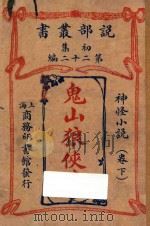 說部叢書
初集
第二十二編
神怪小說
(卷下)
鬼山狼俠
上海
商務印書館發行